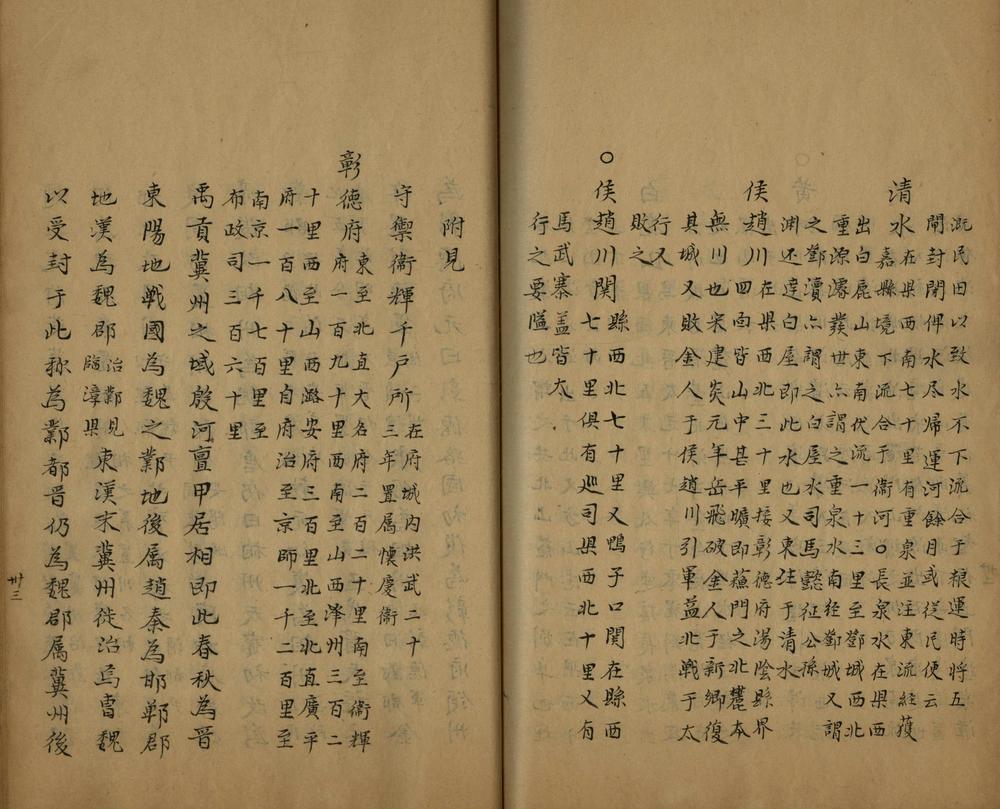 溉民田以致水不下流合于粮運時將五
閘封閉俾水尽歸運河餘月或從民便云
清水在県西南七十里有重泉並注東流經獲
嘉縣境下流合于衞河○長泉水在県西
出白鹿山東南伐流一十三里至鄧城西北
重源濬發世亦謂之重泉水南経鄧城又謂
之鄧瀆亦謂之白屋水司馬懿征公孫
渊还達白屋即此水也又東住于清水
侯趙川在県西北三十里接彰德府湯陰縣界
四面皆山中甚平曠即蘓門之北麓本
無川也宋建炎元年岳飛破金人于新鄉復
其城又敗金人于侯趙川引軍益北戰于太
行又
敗之
○侯趙川関縣西北七十里又鴨子口関在縣西
七十里俱有巡司県西北十里又有
馬武寨盖皆太
行之要隘也
附見
守禦衞輝千戸所在府城内洪武二十
三年置属懷慶衞
彰德府東至北直大名府二百二十里南至衞輝
府一百九十里西南至山西澤州三百二
十里西至山西潞安府三百里北至北直廣平
府一百八十里自府治至京師一千二百里至
南京一千七百里至
布政司三百六十里
禹貢冀州之域殷河亶甲居相即此春秋為晉
東陽地戦國為魏之鄴地後属趙秦為邯鄲郡
地漢為魏郡治鄴見
臨漳県
東漢末冀州徙治焉曹魏
以受封于此称為鄴都晋仍為魏郡属冀州後
卅三